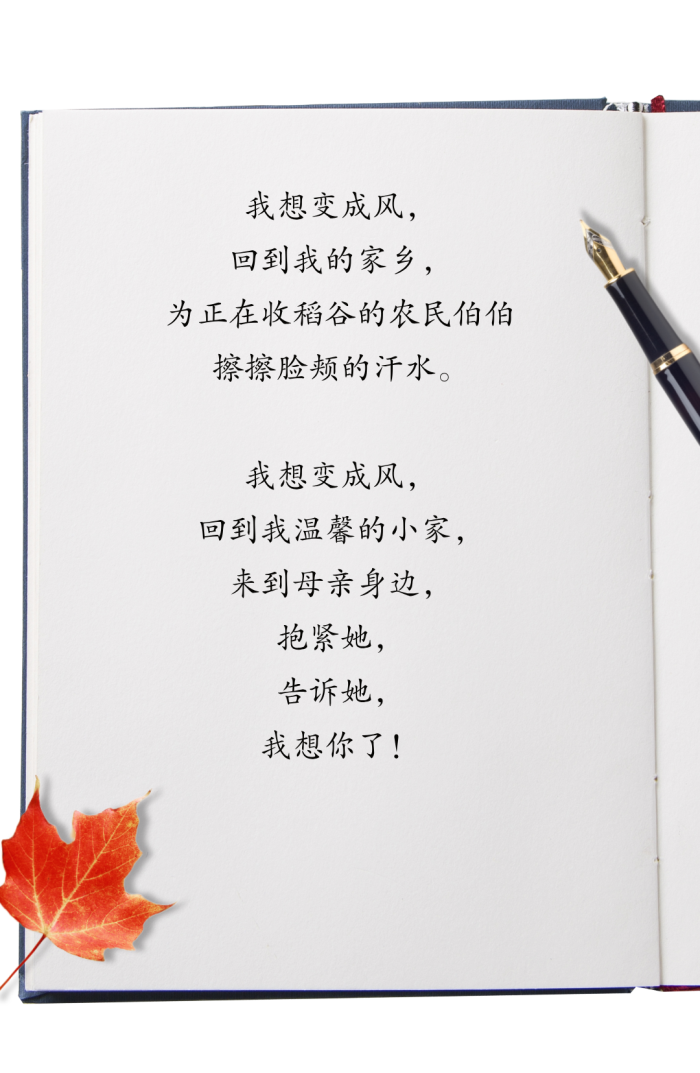 我想变成风，
回到我的家乡，
为正在收稻谷的农民伯伯
擦擦脸颊的汗水。
我想变成风，
回到我温馨的小家，
来到母亲身边，
抱紧她，
告诉她，
我想你了！